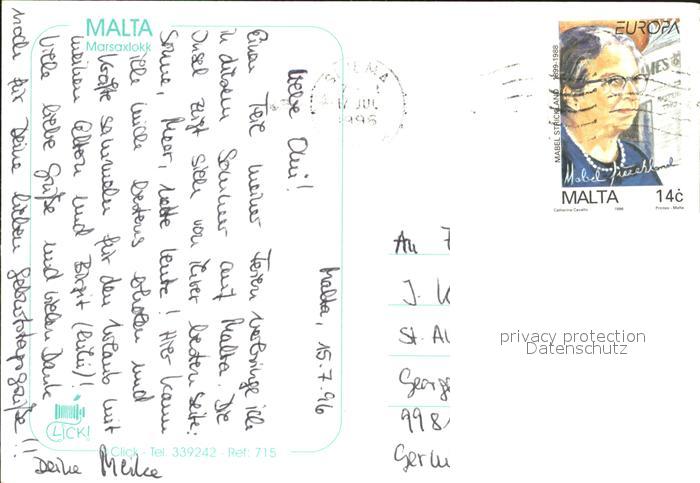 MALTA
Marsaxlokk
Malta, 15.7.96
Liebe Omi!
Einen Teil meiner Ferien verbringe ich
in diesem Sommer auf Malta. Die
Insel zeigt sich von ihrer besten Seite:
Sonne, Meer, nette Leute! Hier kann
ich mich bestens erholen und
Kräfte sammeln für den Urlaub mit
meinen Eltern und Birgit (Lilli)!
Viele liebe Grüße und vielen Dank
noch für Deine lieben Geburtstagsgrüße!!
Deine Meike
CLICK!
Click - Tel. 339242 - Ref: 715
17 JUL
1996
EUROPA
MABEL STRICKLAND 1899-1988
Mabel Strickland
MALTA 14ċ
Catherine Cavallo 1996 Printex - Malta
An
J.
St.
Georg
998
Germ
privacy protection
Datenschutz